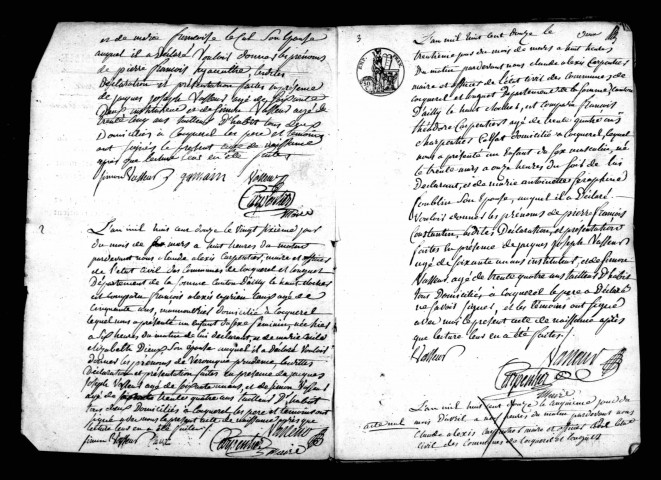 et de marie françoise le Cal Son Epouse
auquel il a Déclaré Vouloir donner les prénoms
de pierre françois hyacinthe lesdites
Déclaration et présentation faites en présence
de jaques joseph Vasseur agé de soixante
ans instituteur et de simon Vasseur agé de
trente quatre ans tailleur d'habit tous deux
Domiciliés à Cocquerel les père et témoins
ont signés le présent acte de naissance
après que lecture leur en a été faites
simon Vasseur gamain Vasseur
Carpentier
Maire
2
L'an mil huit cent douze le Vingt sixième jour
du mois de mars a huit heures du matin
pardevant nous claude alexis Carpentier, maire et officier
de l'etat Civil des Communes de Cocquerel et longuet
Département de la Somme canton d'ailly le haut clocher
est comparu françois alexis cyprien agé de
Cinquante ans, Domicilié à Cocquerel
lequel nous a présenté un enfant du sexe féminin, née hier
a Sept heures du matin de lui declarant, et de marie
elizabethe Son epouse auquel il a Déclaré Vouloir
Donner les prénoms de Veronique prudence lesdittes
Déclaration et présentation faites en presence de jaques
joseph Vasseur agé de soixante ans et de simon Vasseur
agé de trente quatre ans tailleur D'habit
tous deux Domiciliés à Cocquerel, les père et temoins ont
signé avec nous le présent acte de naissance après que
lecture leur en a été faites
simon Vasseur Vasseur
Carpentier
Maire
3
L'an mil huit cent douze le
trentième jour du mois de mars a huit heures
Du matin pardevant nous claude alexis Carpentier
maire et officier de l'état civil des communes de
Cocquerel et longuet Departement de la somme Canton
D'ailly le haut clocher, est comparu françois
théodore Carpentier agé de trente quatre ans
charpentier Domicilié à Cocquerel, lequel
nous a présenté un Enfant du sexe masculin, né
le trente mars a onze heures du soir de lui
Déclarant, et de marie antoinette Séraphine
Son Epouse, auquel il a Déclaré
Vouloir donner les prénoms de pierre françois
Constantin, lesdites Déclaration, et présentation
faites en présence de jaques joseph Vasseur
agé de soixante ans instituteur, et de simon
Vasseur agé de trente quatre ans tailleur D'habit
tous Domiciliés à Cocquerel le père a Déclaré
ne Savoir signer, et les témoins ont signé
avec nous le présent acte de naissance après
que lecture leur en a été faites
Vasseur Vasseur
Carpentier
Maire
acte nul
L'an mil huit cent douze le cinquième jour du
mois D'avril a neuf heures du matin pardevant nous
Claude alexis Carpentier maire et officier de l'état
civil des Communes de Cocquerel et longuet